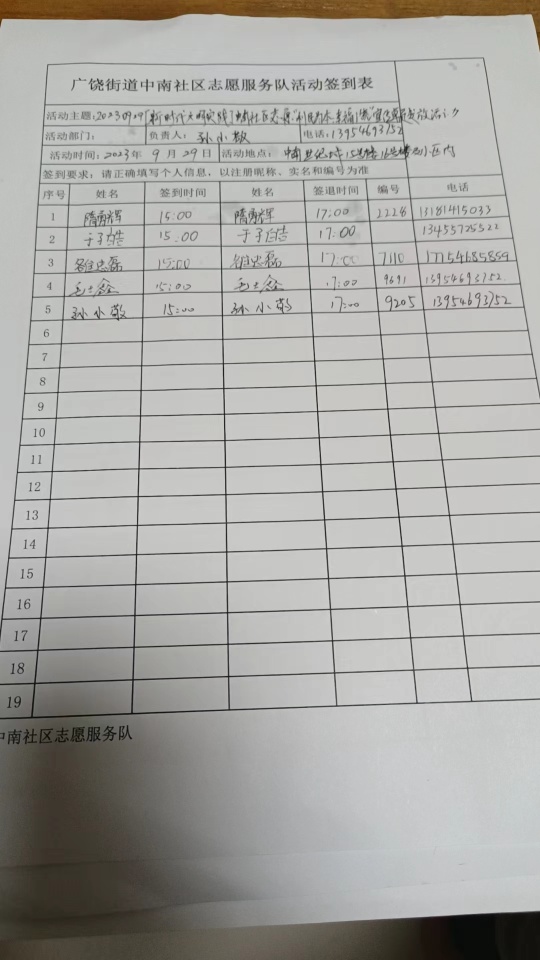 广饶街道中南社区志愿服务队活动签到表
活动主题:20230929「新时代文明实践」中南社区志愿
活动部门: 负责人: 孙小敏 电话:13954693152
活动时间:2023年 9 月 29 日 活动地点: 中南世纪城15号楼16号楼 小区内
签到要求:请正确填写个人信息,以注册昵称、实名和编号为准
序号 姓名 签到时间 姓名 签退时间 编号 电话
1 隋勇辉 15:00 隋勇辉 17:00 2228 13181415033
2 于子皓 15:00 于子皓 17:00 13455725522
3 15:00 17:00 7110 17754685859
4 15:00 17:00 9691 13954693152
5 孙小敏 15:00 孙小敏 17:00 9205 13954693152
6
7
8
9
10
11
12
13
14
15
16
17
18
19
中南社区志愿服务队